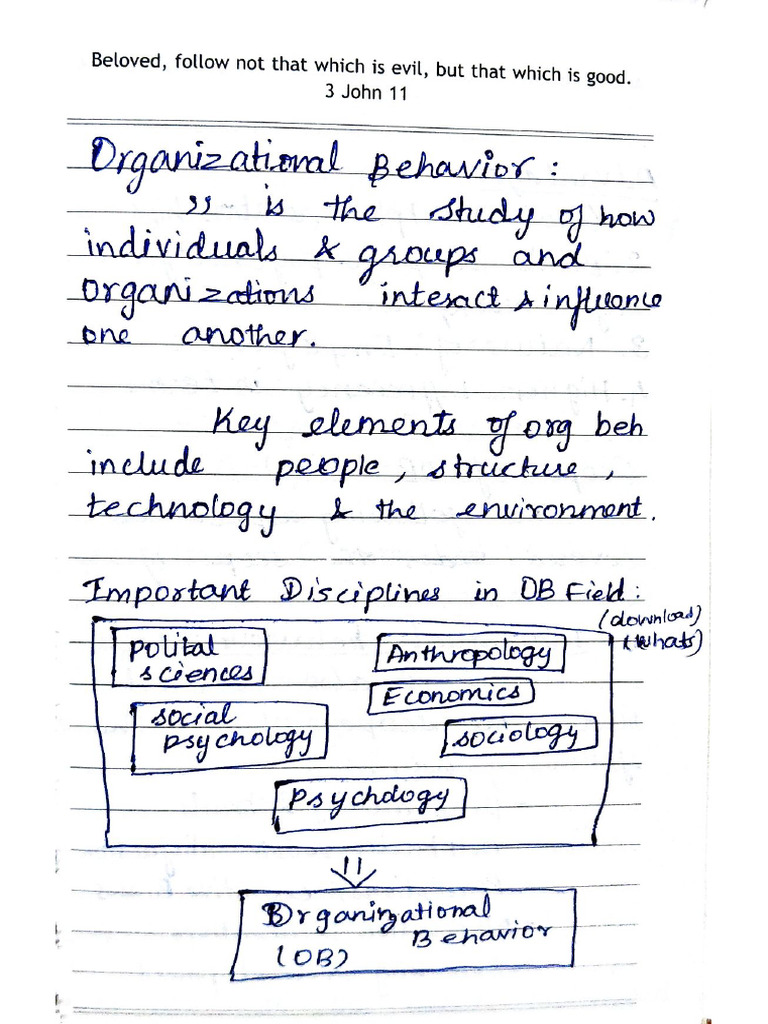 Beloved, follow not that which is evil, but that which is good.
3 John 11
Organizational Behavior :
,, is the study of how
individuals & groups and
organizations interact & influence
one another.
Key elements of org beh
include people, structure,
technology & the environment.
Important Disciplines in OB Field :
(download)
(whats)
Polital
sciences
Anthropology
Economics
social
psychology
sociology
Psychology
Organizational
Behavior
(OB)